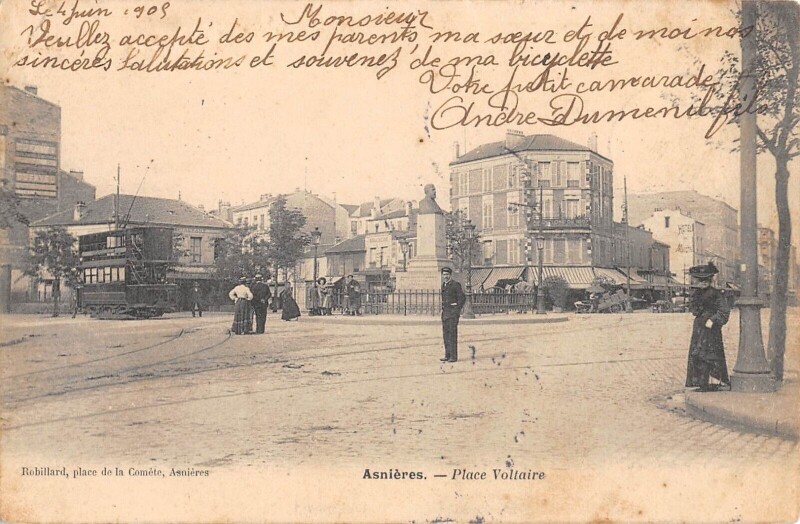 Le 4 Juin 1905
Monsieur
Veuillez accepté des mes parents ma sœur et de moi nos
sincères Salutations et souvenez de ma bicyclette
Votre petit camarade
Andre Dumenil fils
HOTEL
Robillard, place de la Cométe, Asnières
Asnières. — Place Voltaire